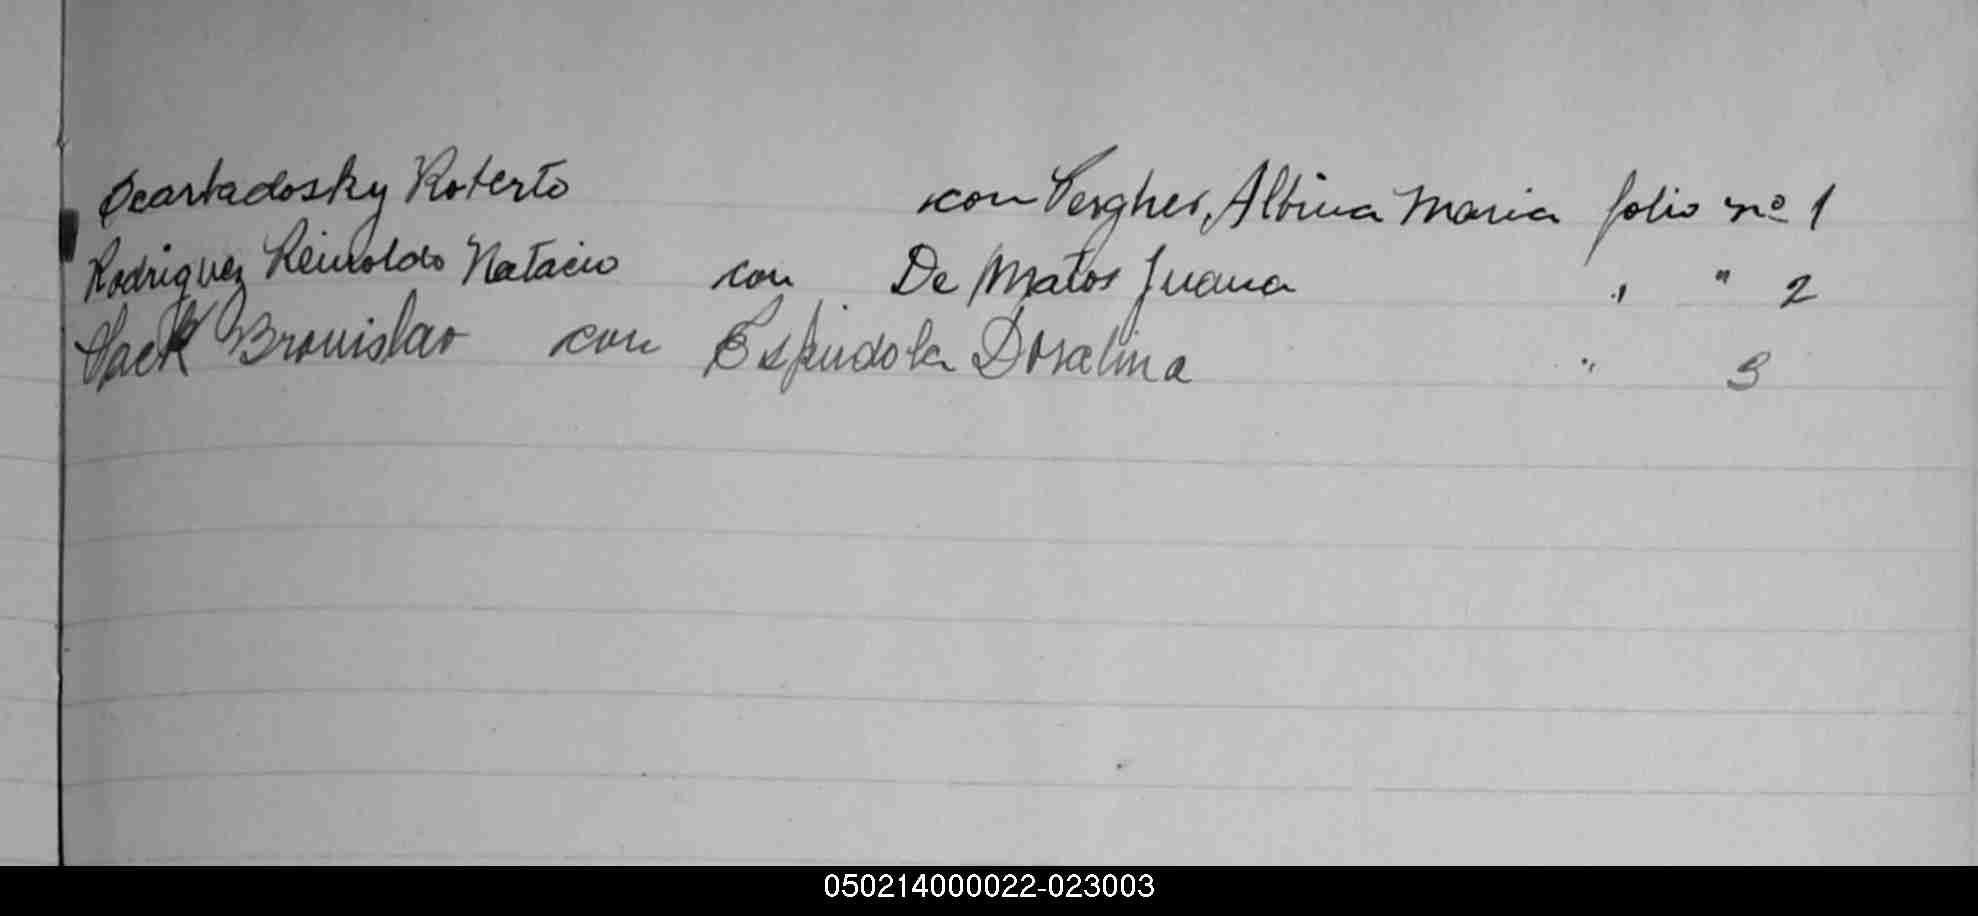 Scartadosky Roberto con Vergher, Albina Maria folio nº 1
Rodriguez Reinoldo Natacio con De Matos Juana " " 2
Slack Bronislao con Espindola Dosalina " 3
050214000022-023003